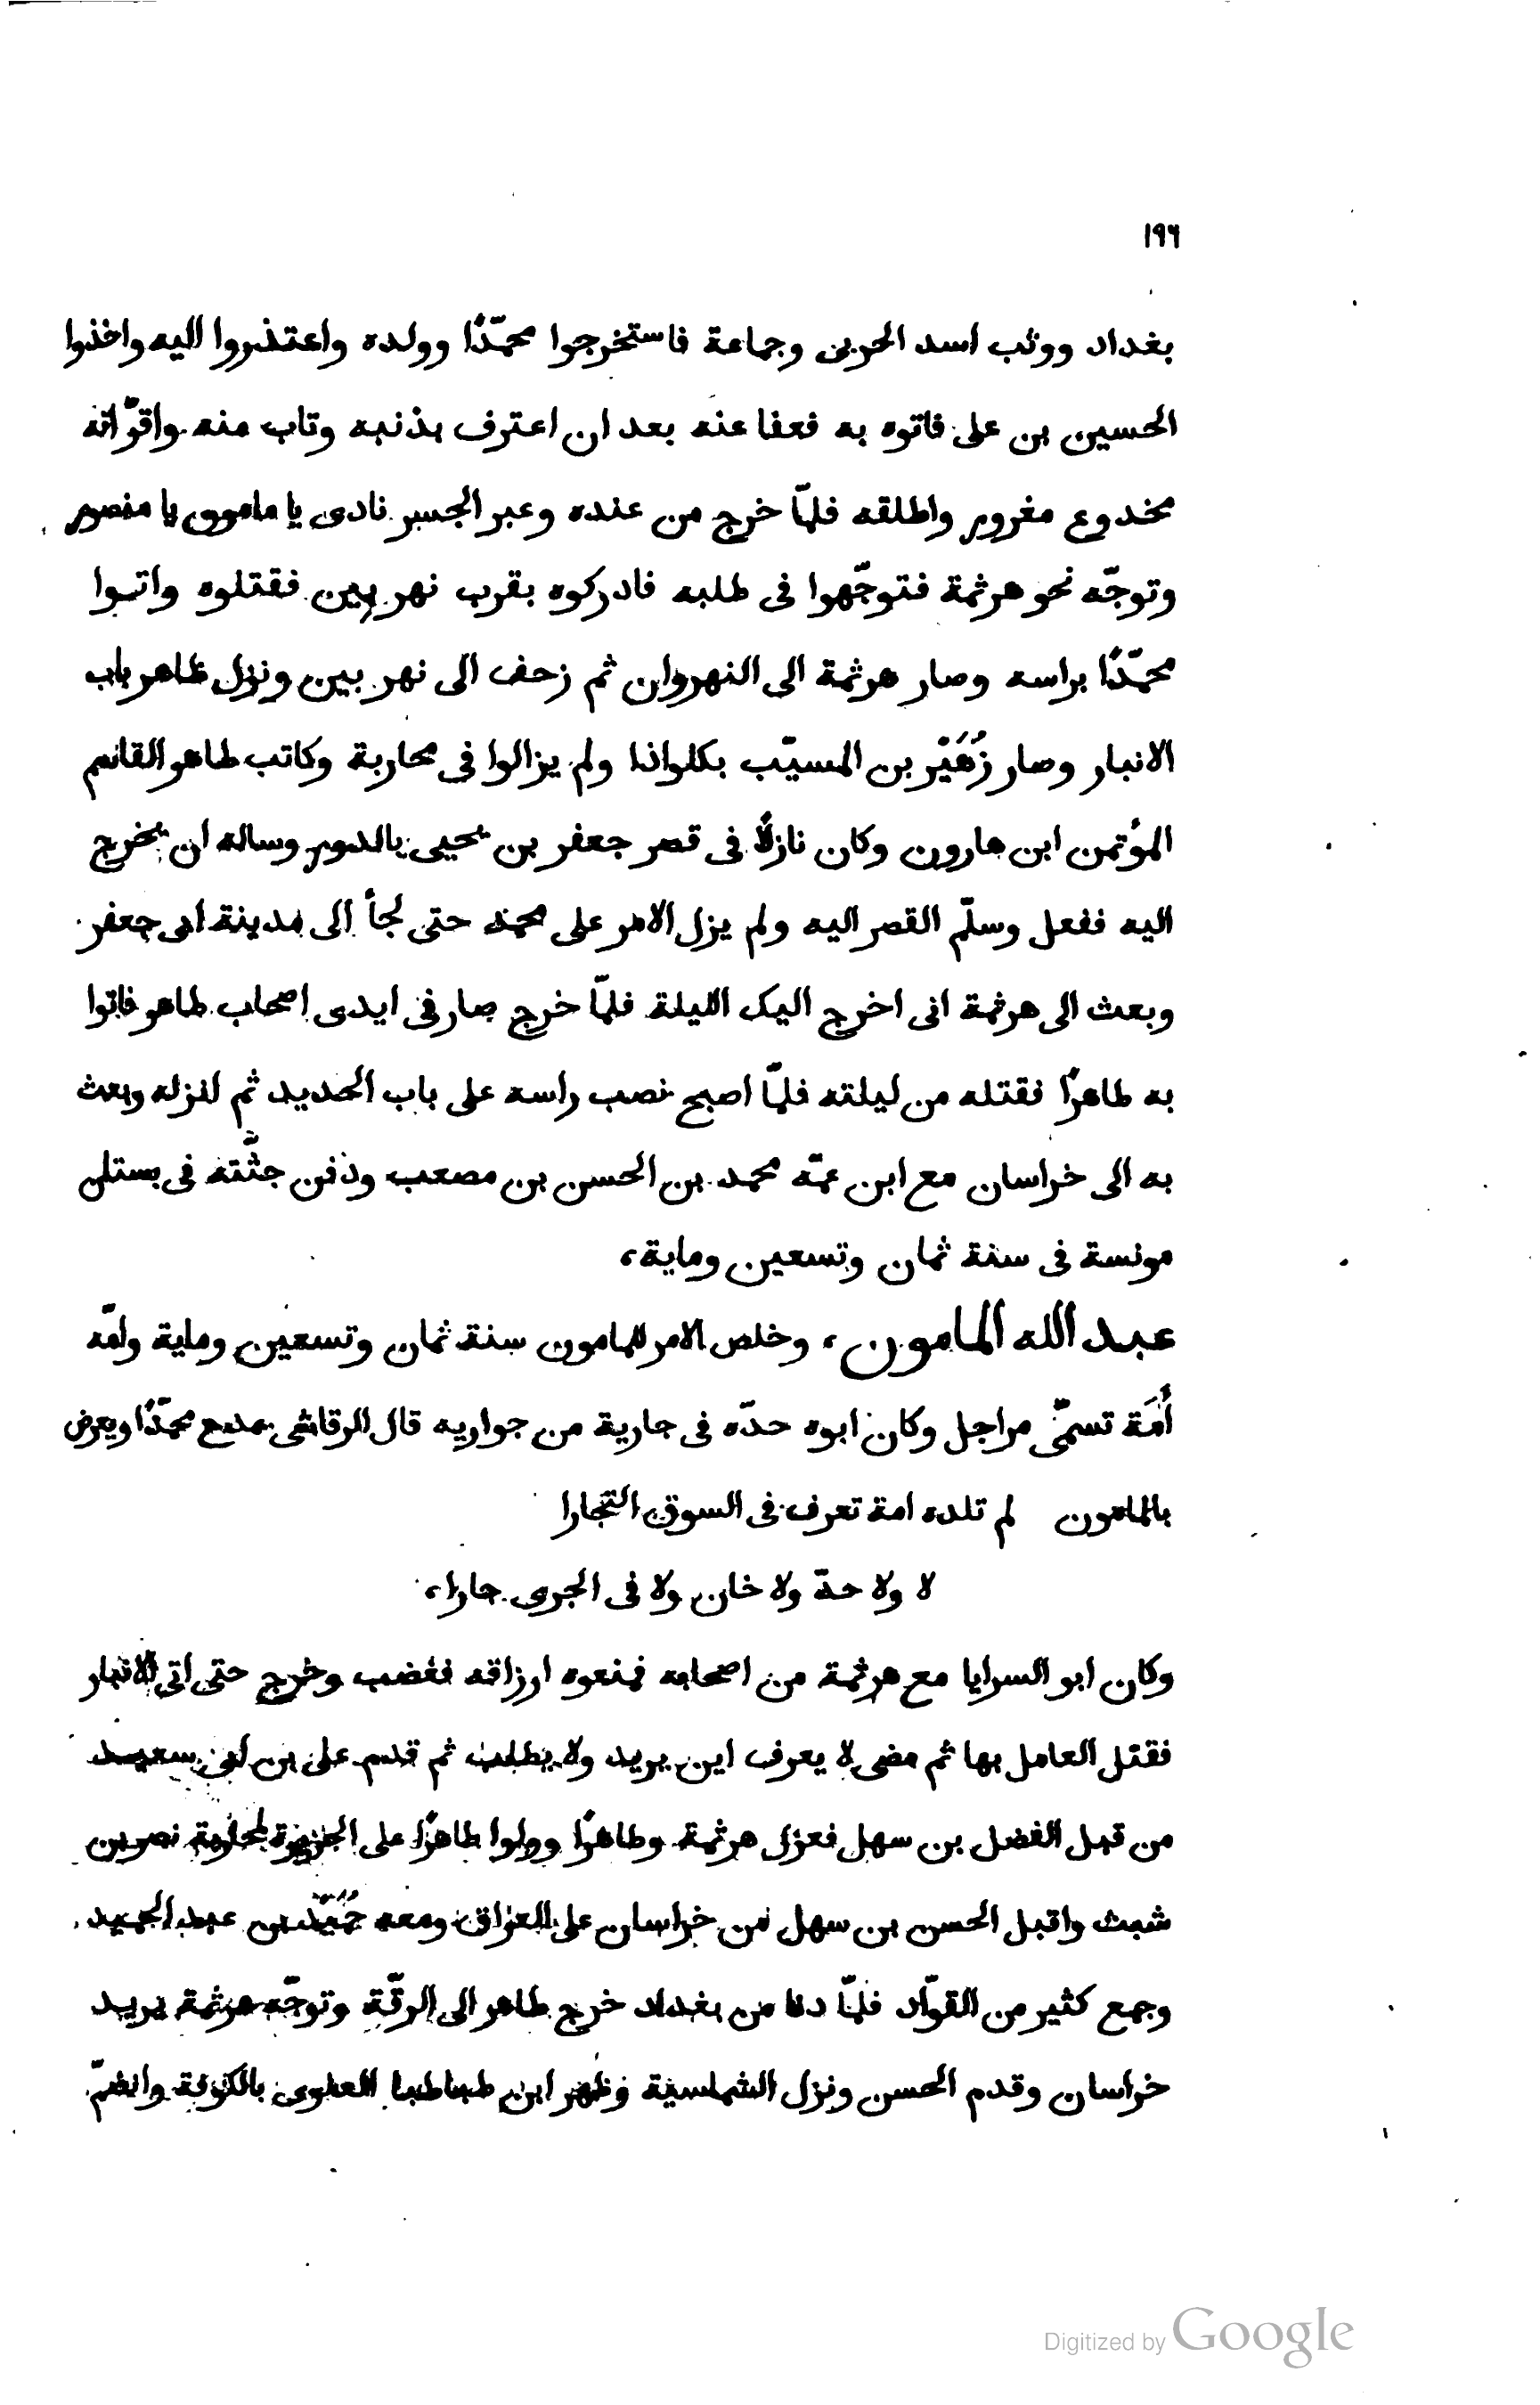 ١٩٦
بغداد ووثب اسد الحربى وجماعة فاستخرجوا محمّدًا وولده واعتذروا اليه واخذوا
الحسين بن على فاتوه به فعفا عنه بعد ان اعترف بذنبه وتاب منه واقرّ انّه
مخدوع مغرور واطلقه فلمّا خرج من عنده وعبر الجسر نادى يا مامون يا منصور
وتوجّه نحو هرثمة فتوجّهوا فى طلبه فادركوه بقرب نهر بين فقتلوه واتوا
محمّدًا براسه وصار هرثمة الى النهروان ثم زحف الى نهر بين ونزل طاهر باب
الانبار وصار زُهَيْر بن المسيّب بكلواذا ولم يزالوا فى محاربة وكاتب طاهر القاسم
المؤتمن ابن هارون وكان نازلًا فى قصر جعفر بن يحيى بالدور وساله ان يخرج
اليه ففعل وسلّم القصر اليه ولم يزل الامر على محمد حتى لجأ الى مدينة ابى جعفر
وبعث الى هرثمة انى اخرج اليك الليلة فلمّا خرج صار فى ايدى اصحاب طاهر فاتوا
به طاهرًا فقتله من ليلته فلمّا اصبح نصب راسه على باب الحديد ثم انزله وبعث
به الى خراسان مع ابن عمّه محمد بن الحسن بن مصعب ودفن جثّته فى بستان
مونسة فى سنة ثمان وتسعين وماية،
عبد الله المامون، وخلص الامر للمامون سنة ثمان وتسعين وماية وامّه
أَمَة تسمّى مراجل وكان ابوه حدّه فى جارية من جواريه قال الرقاشى يمدح محمّدًا ويعرض
بالمامون لم تلده امة تعرف فى السوق التّجارا
لا ولا حدّ ولا خان ولا فى الجرى جارا،
وكان ابو السرايا مع هرثمة من اصحابه فمنعوه ارزاقه فغضب وخرج حتى اتى الانبار
فقتل العامل بها ثم مضى لا يعرف اين يريد ولا يطلب ثم قدم على بن ابى سعيد
من قبل الفضل بن سهل فعزل هرثمة وطاهرًا وولوا طاهرًا على الجزيرة لمحاربة نصر بن
شبث واقبل الحسن بن سهل من خراسان على العراق ومعه حُمَيْد بن عبد الحميد
وجمع كثير من القوّاد فلمّا دنا من بغداد خرج طاهر الى الرقّة وتوجّه هرثمة يريد
خراسان وقدم الحسن ونزل الشماسيّة وظهر ابن طباطبا العلوى بالكوفة وانضمّ
Digitized by Google